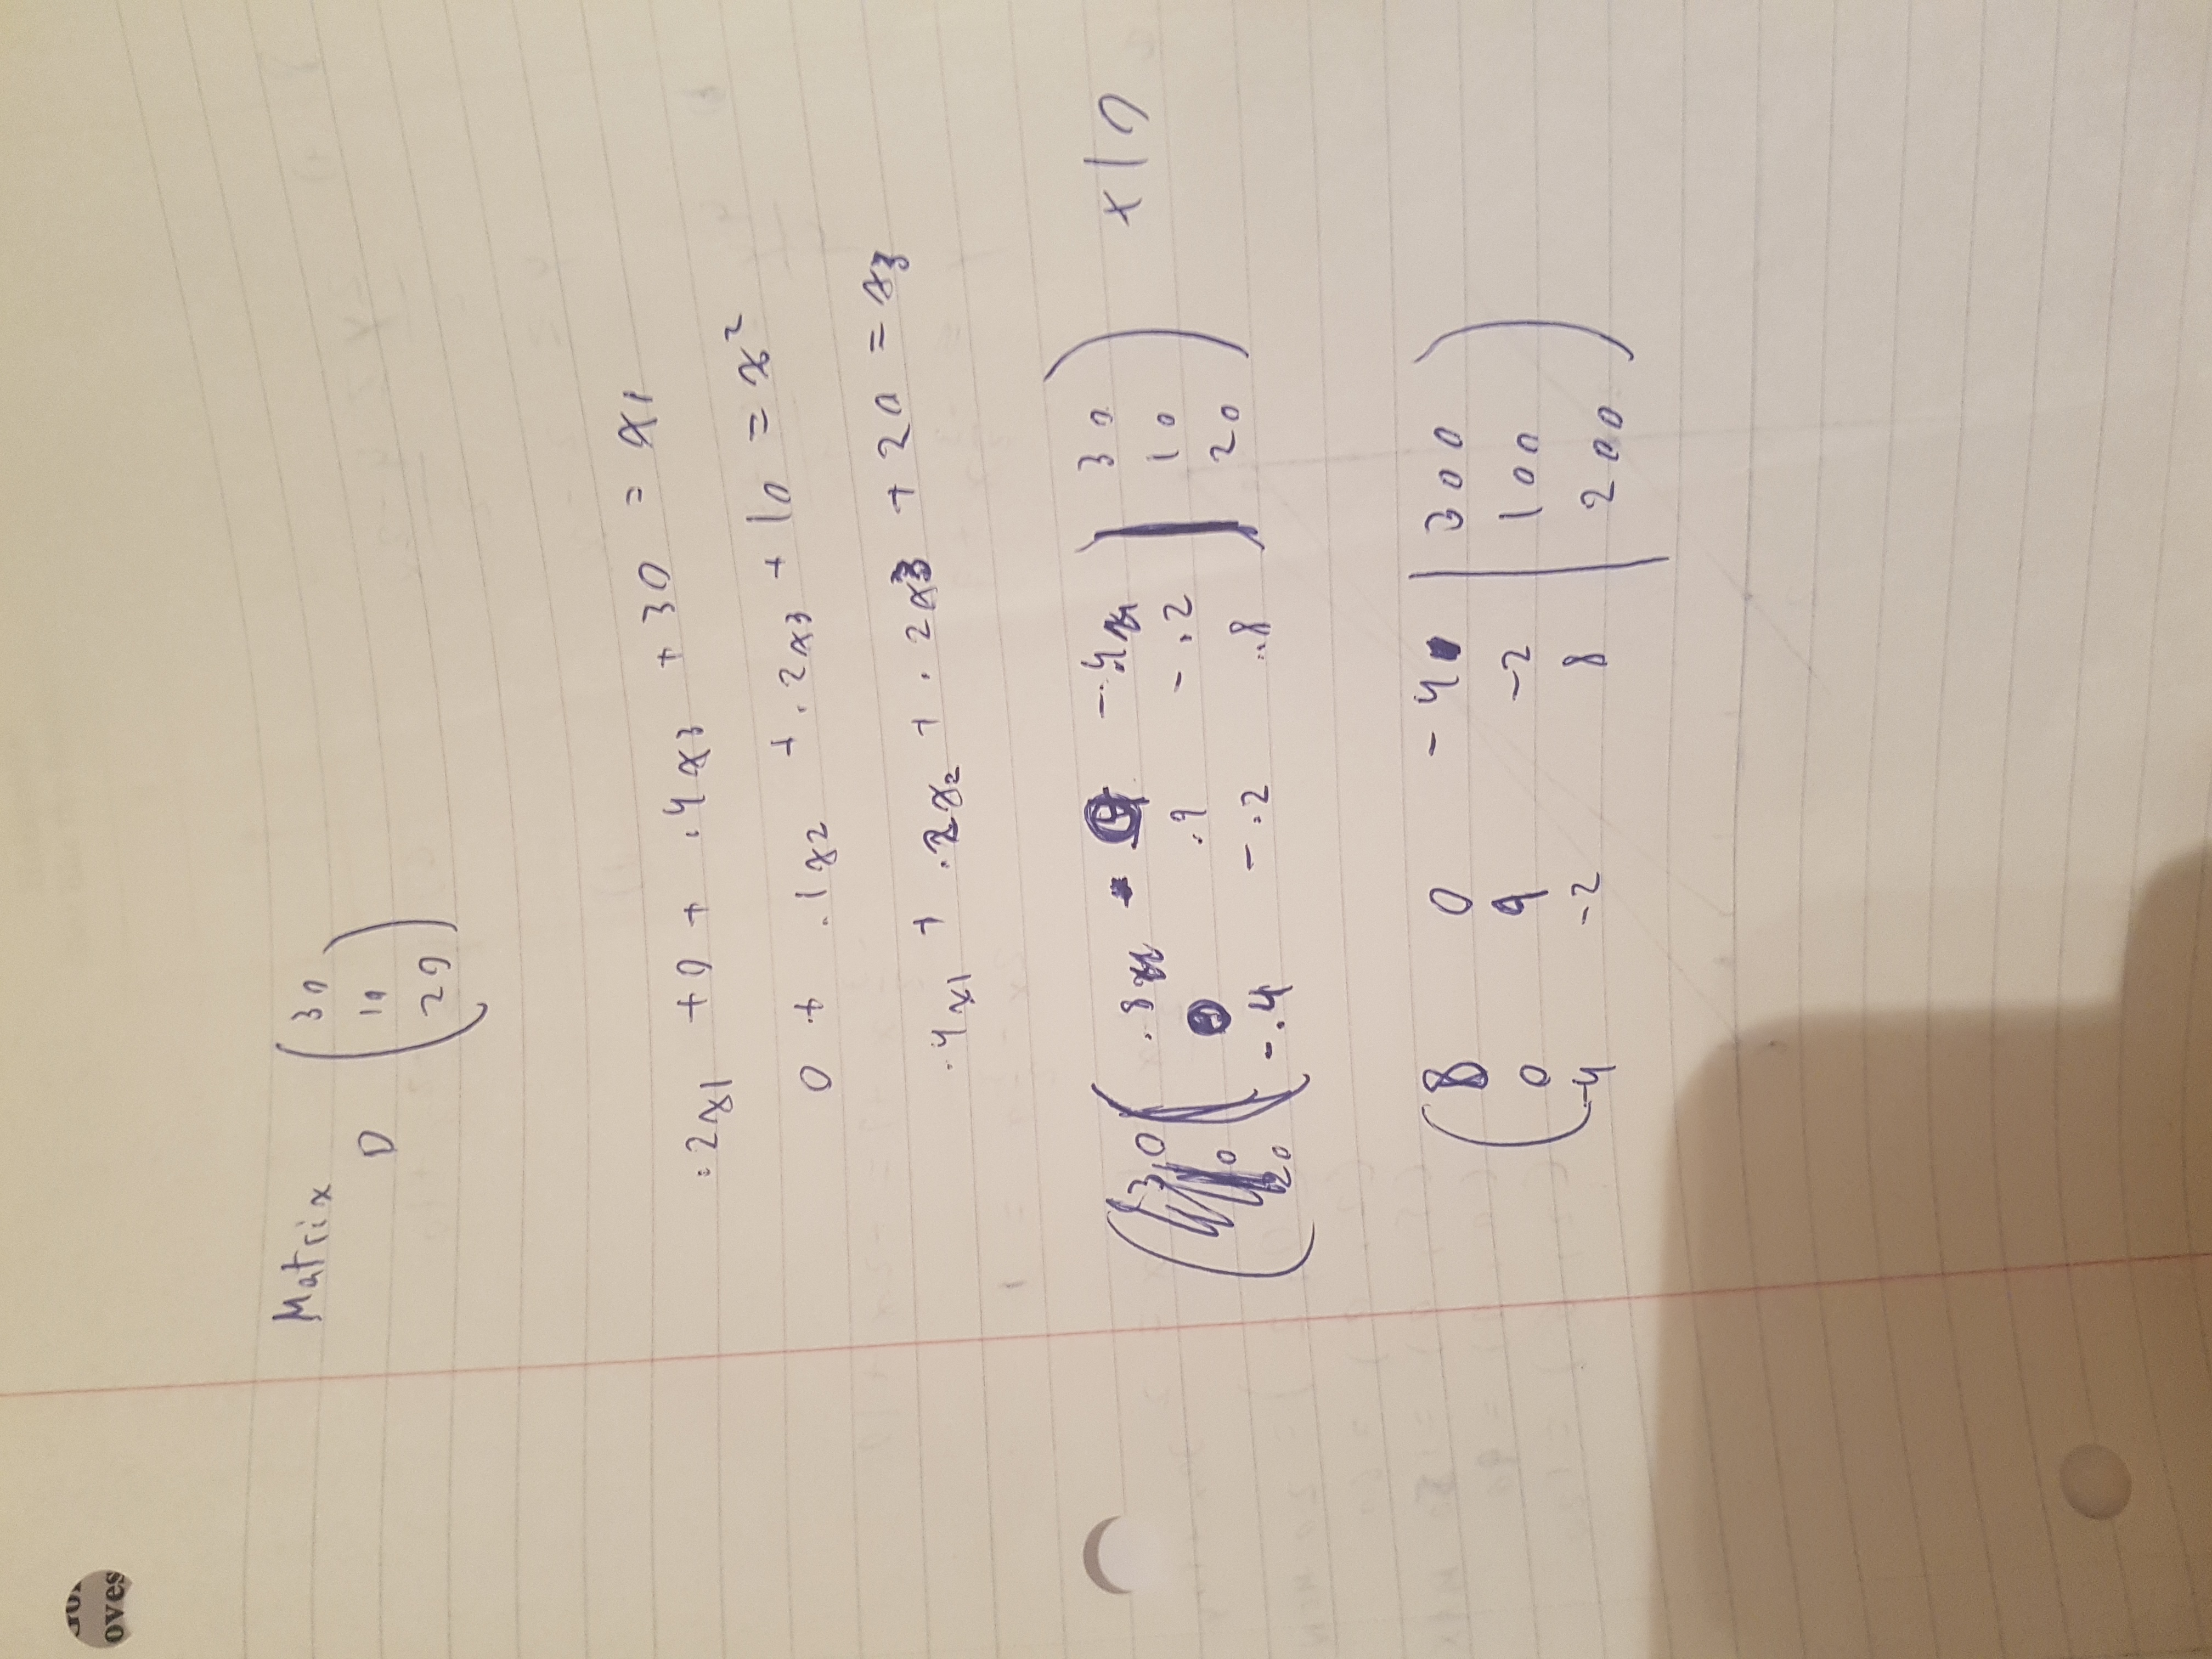 Matrix
D
30
10
20
.2x1 + 0 + .4x3 + 30 = x1
0 + .1x2 + .2x3 + 10 = x2
.4x1 + .2x2 + .2x3 + 20 = x3
.8 -.4 | 30 x10
0 .9 -.2 | 10
-.4 -.2 .8 | 20
8 0 -4 | 300
0 9 -2 | 100
-4 -2 8 | 200
oves